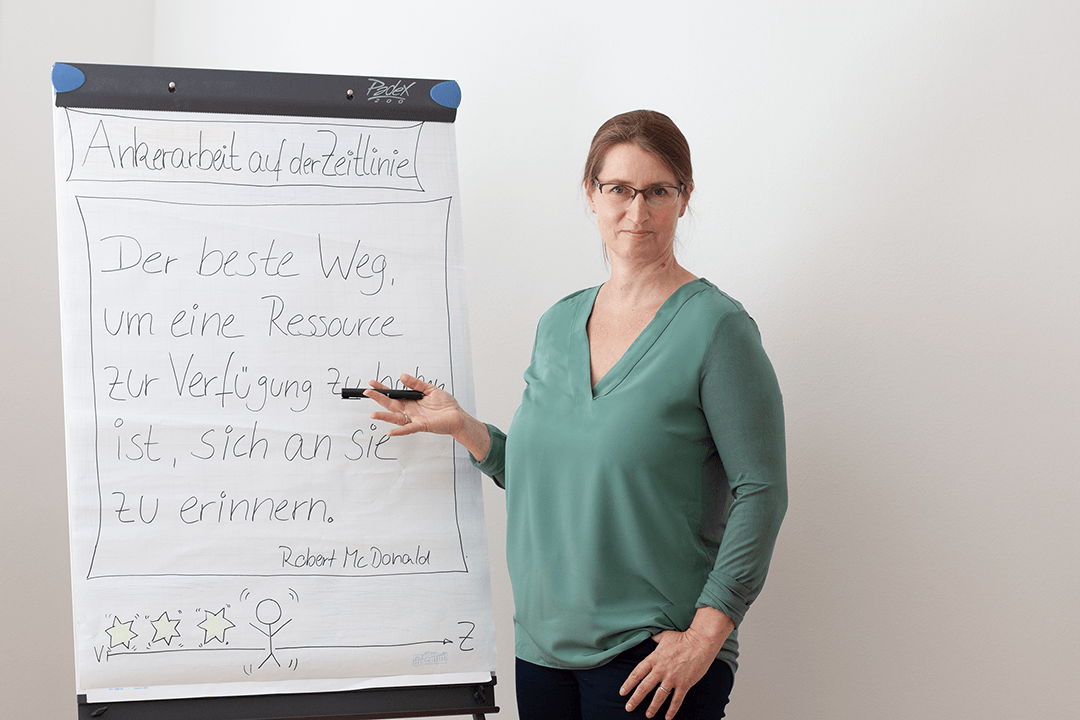 Padex
200
Ankerarbeit auf der Zeitlinie
Der beste Weg,
um eine Ressource
zur Verfügung zu haben
ist, sich an sie
zu erinnern.
Robert McDonald
V
Z